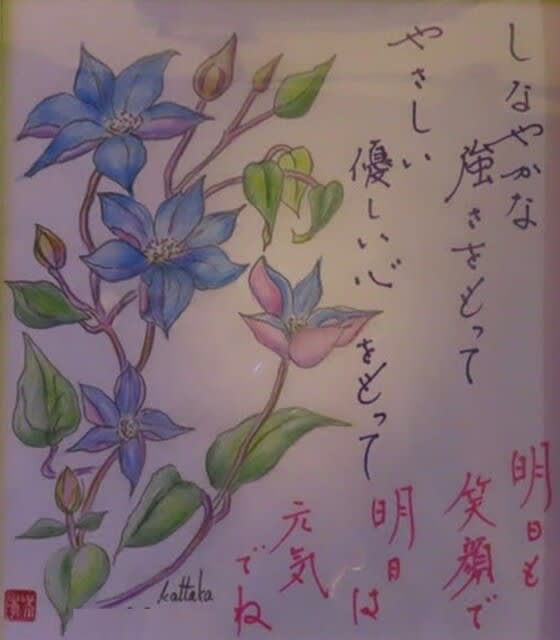 しなやかな
強さをもって
やさしい
優しい心をもって
明日も
笑顔で
明日は
元気
でね
kattaka